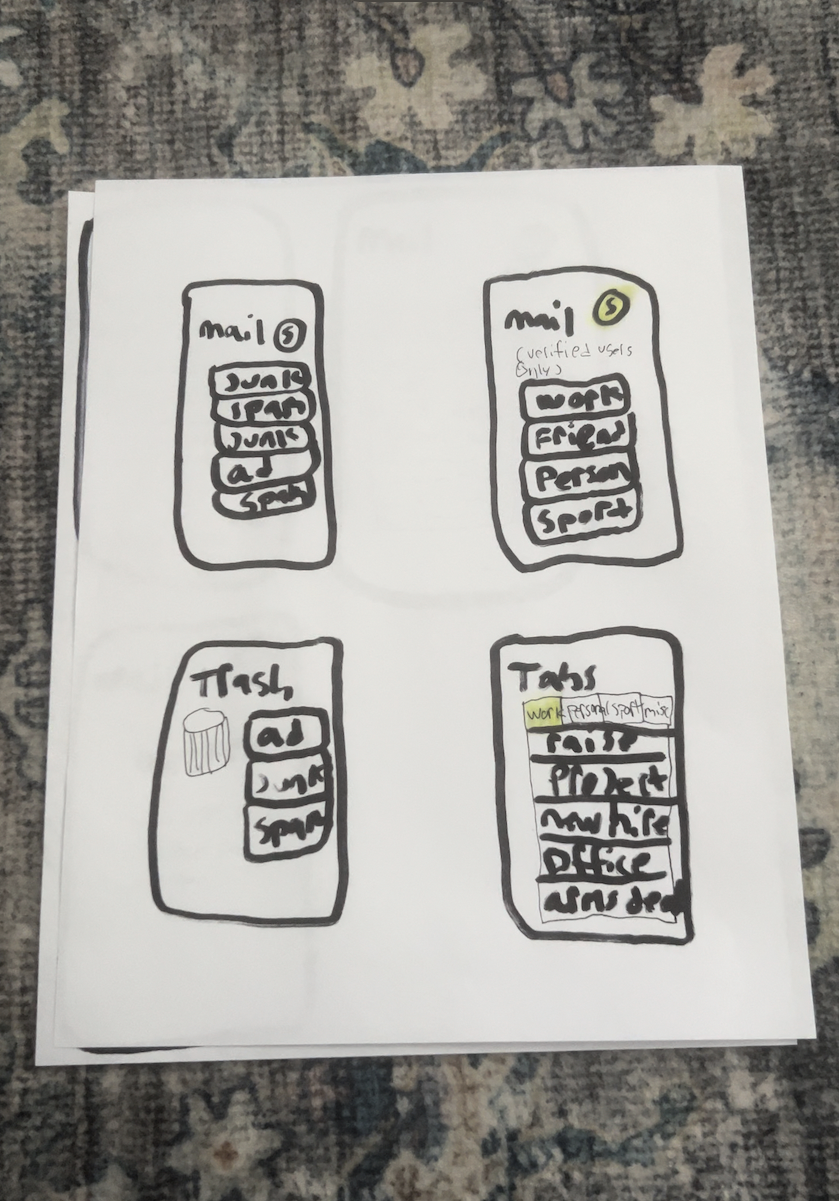 mail S
Junk
spam
Junk
ad
Spam
mail S
(verified users
Only)
work
Friend
Person
Sport
Trash
ad
Junk
spam
Tabs
work personal sport misc
raise
Project
new hire
Office
arms deal